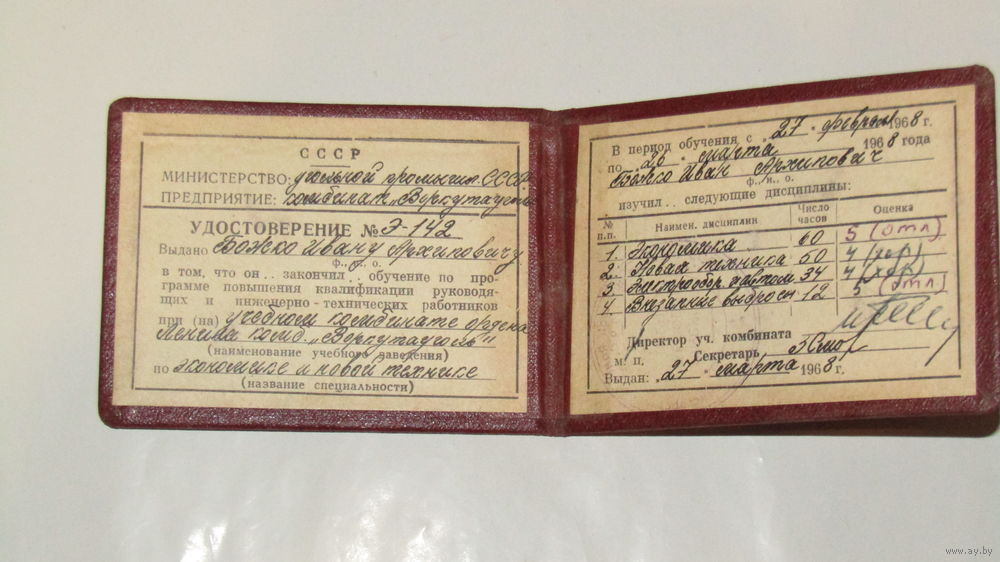 СССР
МИНИСТЕРСТВО: угольной промышл. СССР
ПРЕДПРИЯТИЕ: комбинат Воркутауголь
УДОСТОВЕРЕНИЕ № Э-142
Выдано Божко Ивану Архиповичу
ф., и., о.
в том, что он.. закончил.. обучение по про-
грамме повышения квалификации руководя-
щих и инженерно-технических работников
при (на) учебном комбинате ордена
Ленина комб. „Воркутауголь"
(наименование учебного заведения)
по экономике и новой технике
(название специальности)
В период обучения с „27" февраля 1968 г.
по „26" марта 1968 года
Божко Иван Архипович
ф., и., о.
изучил.. следующие дисциплины:
№ п.п. Наимен. дисциплин Число часов Оценка
1. Экономика 60 5 (отл)
2. Новая техника 50 4 (хор)
3. Электрообор. и автом 34 4 (хор)
4. Внезапные выбросы 12 5 (отл)
Директор уч. комбината
м. п. Секретарь
Выдан: „27" марта 1968 г.
www.ay.by